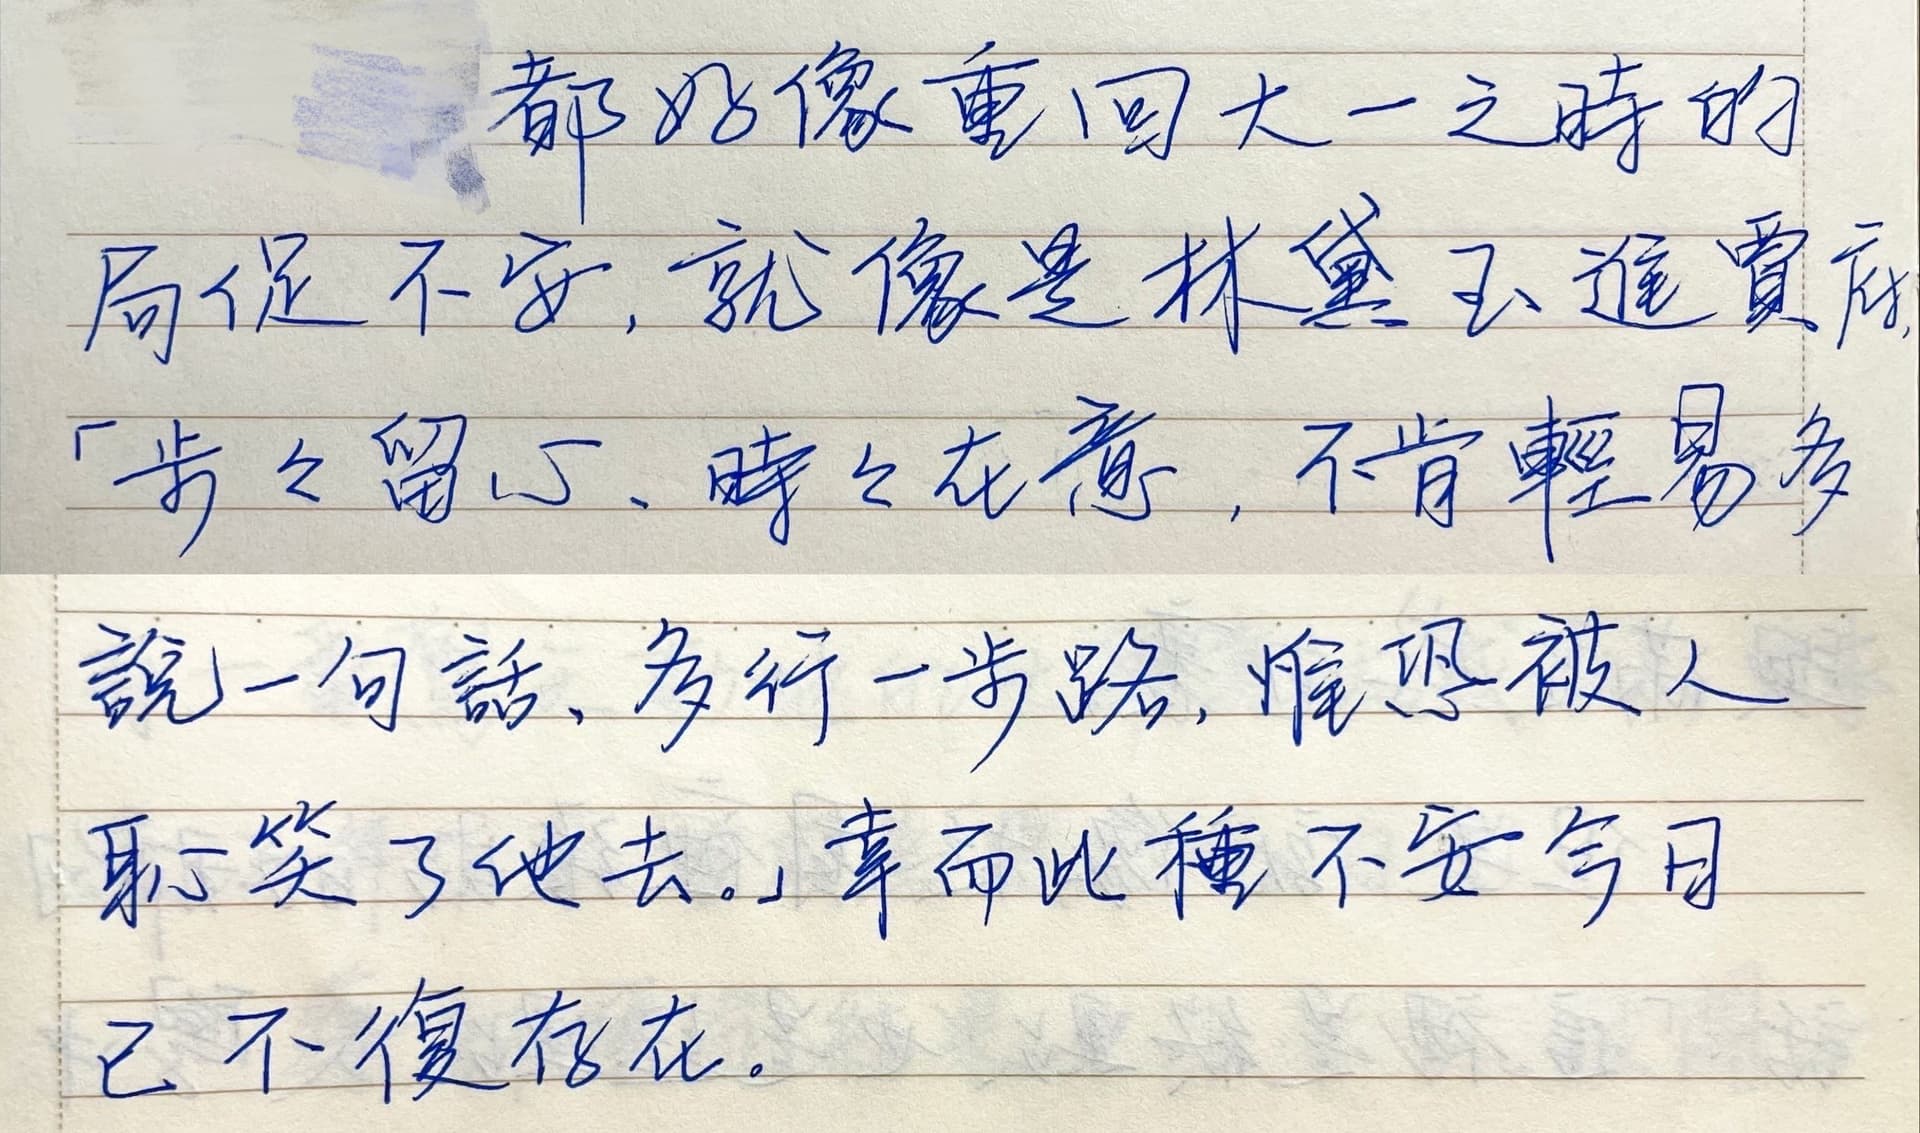 都好像重回大一之時的
局促不安，就像是林黛玉進賈府，
「步々留心、時々在意，不肯輕易多
說一句話、多行一步路，惟恐被人
恥笑了他去。」幸而此種不安今日
已不復存在。